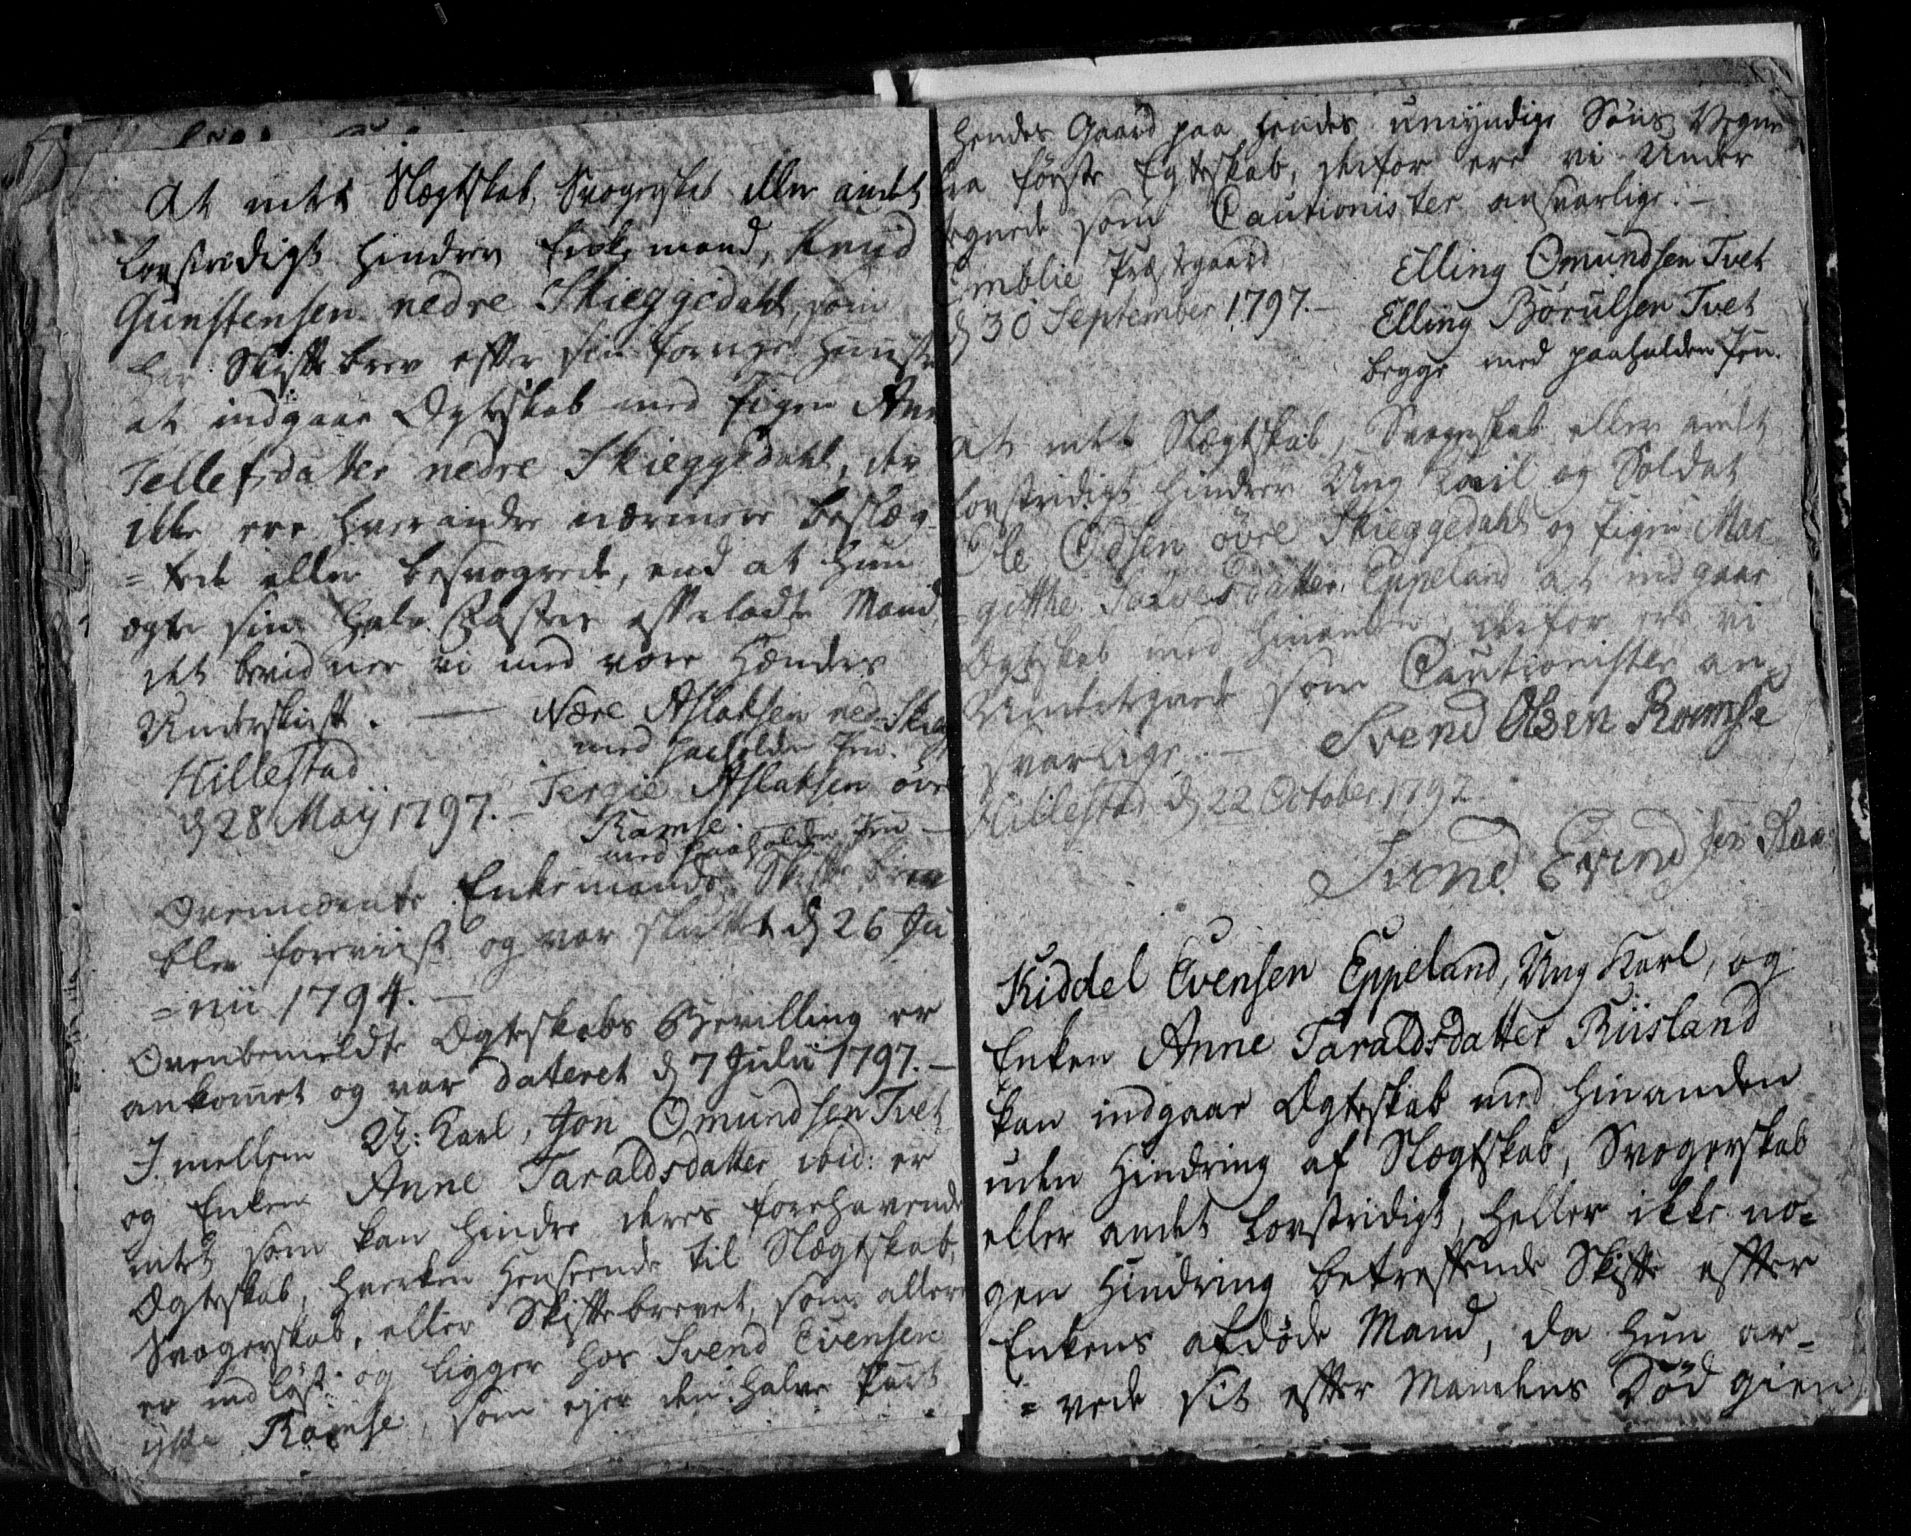 At intet Slægtskab, Svogerskab eller andet
lovstridigt hindrer Enkemand, Knud
Gunstensen nedre Skieggedahl, som
har Skiftebrev efter sin forrige Hustru
at indgaae Ægteskab med Pigen Ann
Tellefsdatter nedre Skieggedahl, der
ikke ere hverandre nærmere beslæg-
= tede eller besvogrede, end at hun
ægter sin halv Søsters efterladte Mand,
det bevidner vi med vore Hænders
Underskrift. — Nære Aslaksen ned. Skieg
med paaholden Pen.
Hillestad
d 28 Maij 1797. — Tergie Aslaksen øvre
Ramse.
med paaholden Pen —
Ovenmeldte Enkemands Skifte brev
blev foreviist og var sluttet d 26 Ju
= nii 1794. —
Ovenbemeldte Ægteskabs Bevilling er
ankomet og var dateret d 7 Julii 1797. —
I mellem U: Karl, Jon Omundsen Tvet
og Enken Anne Taraldsdatter ibid: er
intet som kan hindre deres forehavende
Ægteskab, hverken Henseende til Slægtskab,
Svogerskab, eller Skiftebrevet, som allere
er indløst og ligger hos Svend Evensen
Ramse, som ejer den halve Part
Hendes Gaard paa hendes umyndige Søns Vegne
fra første Egteskab, derfor ere vi Under
tegnede som Cautionister ansvarlige. —
Omblie Præstgaard
d 30 September 1797. —
Elling Omundsen Tvet
Elling Børulsen Tvet
begge med paaholden Pen.
At intet Slægtskab, Svogerskab eller andet
lovstridigt hindrer Ung Karl og Soldat
Ole Odsen øvre Skieggedahl og Pigen Mar
= gitthe Salvesdatter Eppeland at indgaae
Ægteskab med hinanden, derfor ere vi
Undertegnede som Cautionister an
svarlige. — Svend Olsen Ramse
Hillestad d 22 October 1797.
Svend Evend sen
Kiddel Evensen Eppeland, Ung Karl, og
Enken Anne Taraldsdatter Riisland
kan indgaae Ægteskab med hinanden
uden Hindring af Slægtskab, Svogerskab
eller andet lovstridigt, heller ikke no=
gen Hindring betreffende Skifte efter
Enkens afdøde Mand, da hun ar-
= vede sit efter Mandens Død gien